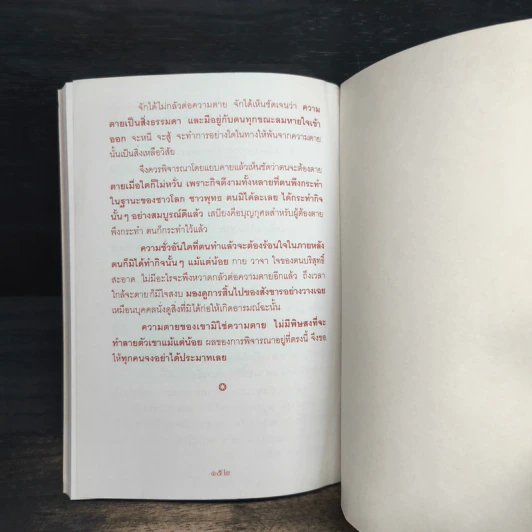 จักได้ไม่กลัวต่อความตาย จักได้เห็นชัดเจนว่า ความ
ตายเป็นสิ่งธรรมดา และมีอยู่กับตนทุกขณะลมหายใจเข้า
ออก จะหนี จะสู้ จะทำการอย่างใดในทางให้พ้นจากความตาย
นั้นเป็นสิ่งเหลือวิสัย
จึงควรพิจารณาโดยแยบคายแล้วเห็นชัดว่าตนจะต้องตาย
ตายเมื่อใดก็ไม่หวั่น เพราะกิจดีงามทั้งหลายที่ตนพึงกระทำ
ในฐานะของชาวโลก ชาวพุทธ ตนมิได้ละเลย ได้กระทำกิจ
นั้นๆ อย่างสมบูรณ์ดีแล้ว เสบียงคือบุญกุศลสำหรับผู้ต้องตาย
พึงกระทำ ตนก็กระทำไว้แล้ว
ความชั่วอันใดที่ตนทำแล้วจะต้องร้อนใจในภายหลัง
ตนก็มิได้ทำกิจนั้นๆ แม้แต่น้อย กาย วาจา ใจของตนบริสุทธิ์
สะอาด ไม่มีอะไรจะพึงหวาดกลัวต่อความตายอีกแล้ว ถึงเวลา
ใกล้จะตายก็มีใจสงบ มองดูการสิ้นไปของสังขารอย่างวางเฉย
เหมือนบุคคลนั่งดูสิ่งที่มิได้ก่อให้เกิดอารมณ์ฉะนั้น
ความตายของเขามิใช่ความตาย ไม่มีพิษสงที่จะ
ทำลายตัวเขาแม้แต่น้อย ผลของการพิจารณาอยู่ที่ตรงนี้ จึงขอ
ให้ทุกคนจงอย่าได้ประมาทเลย
๑๕๒